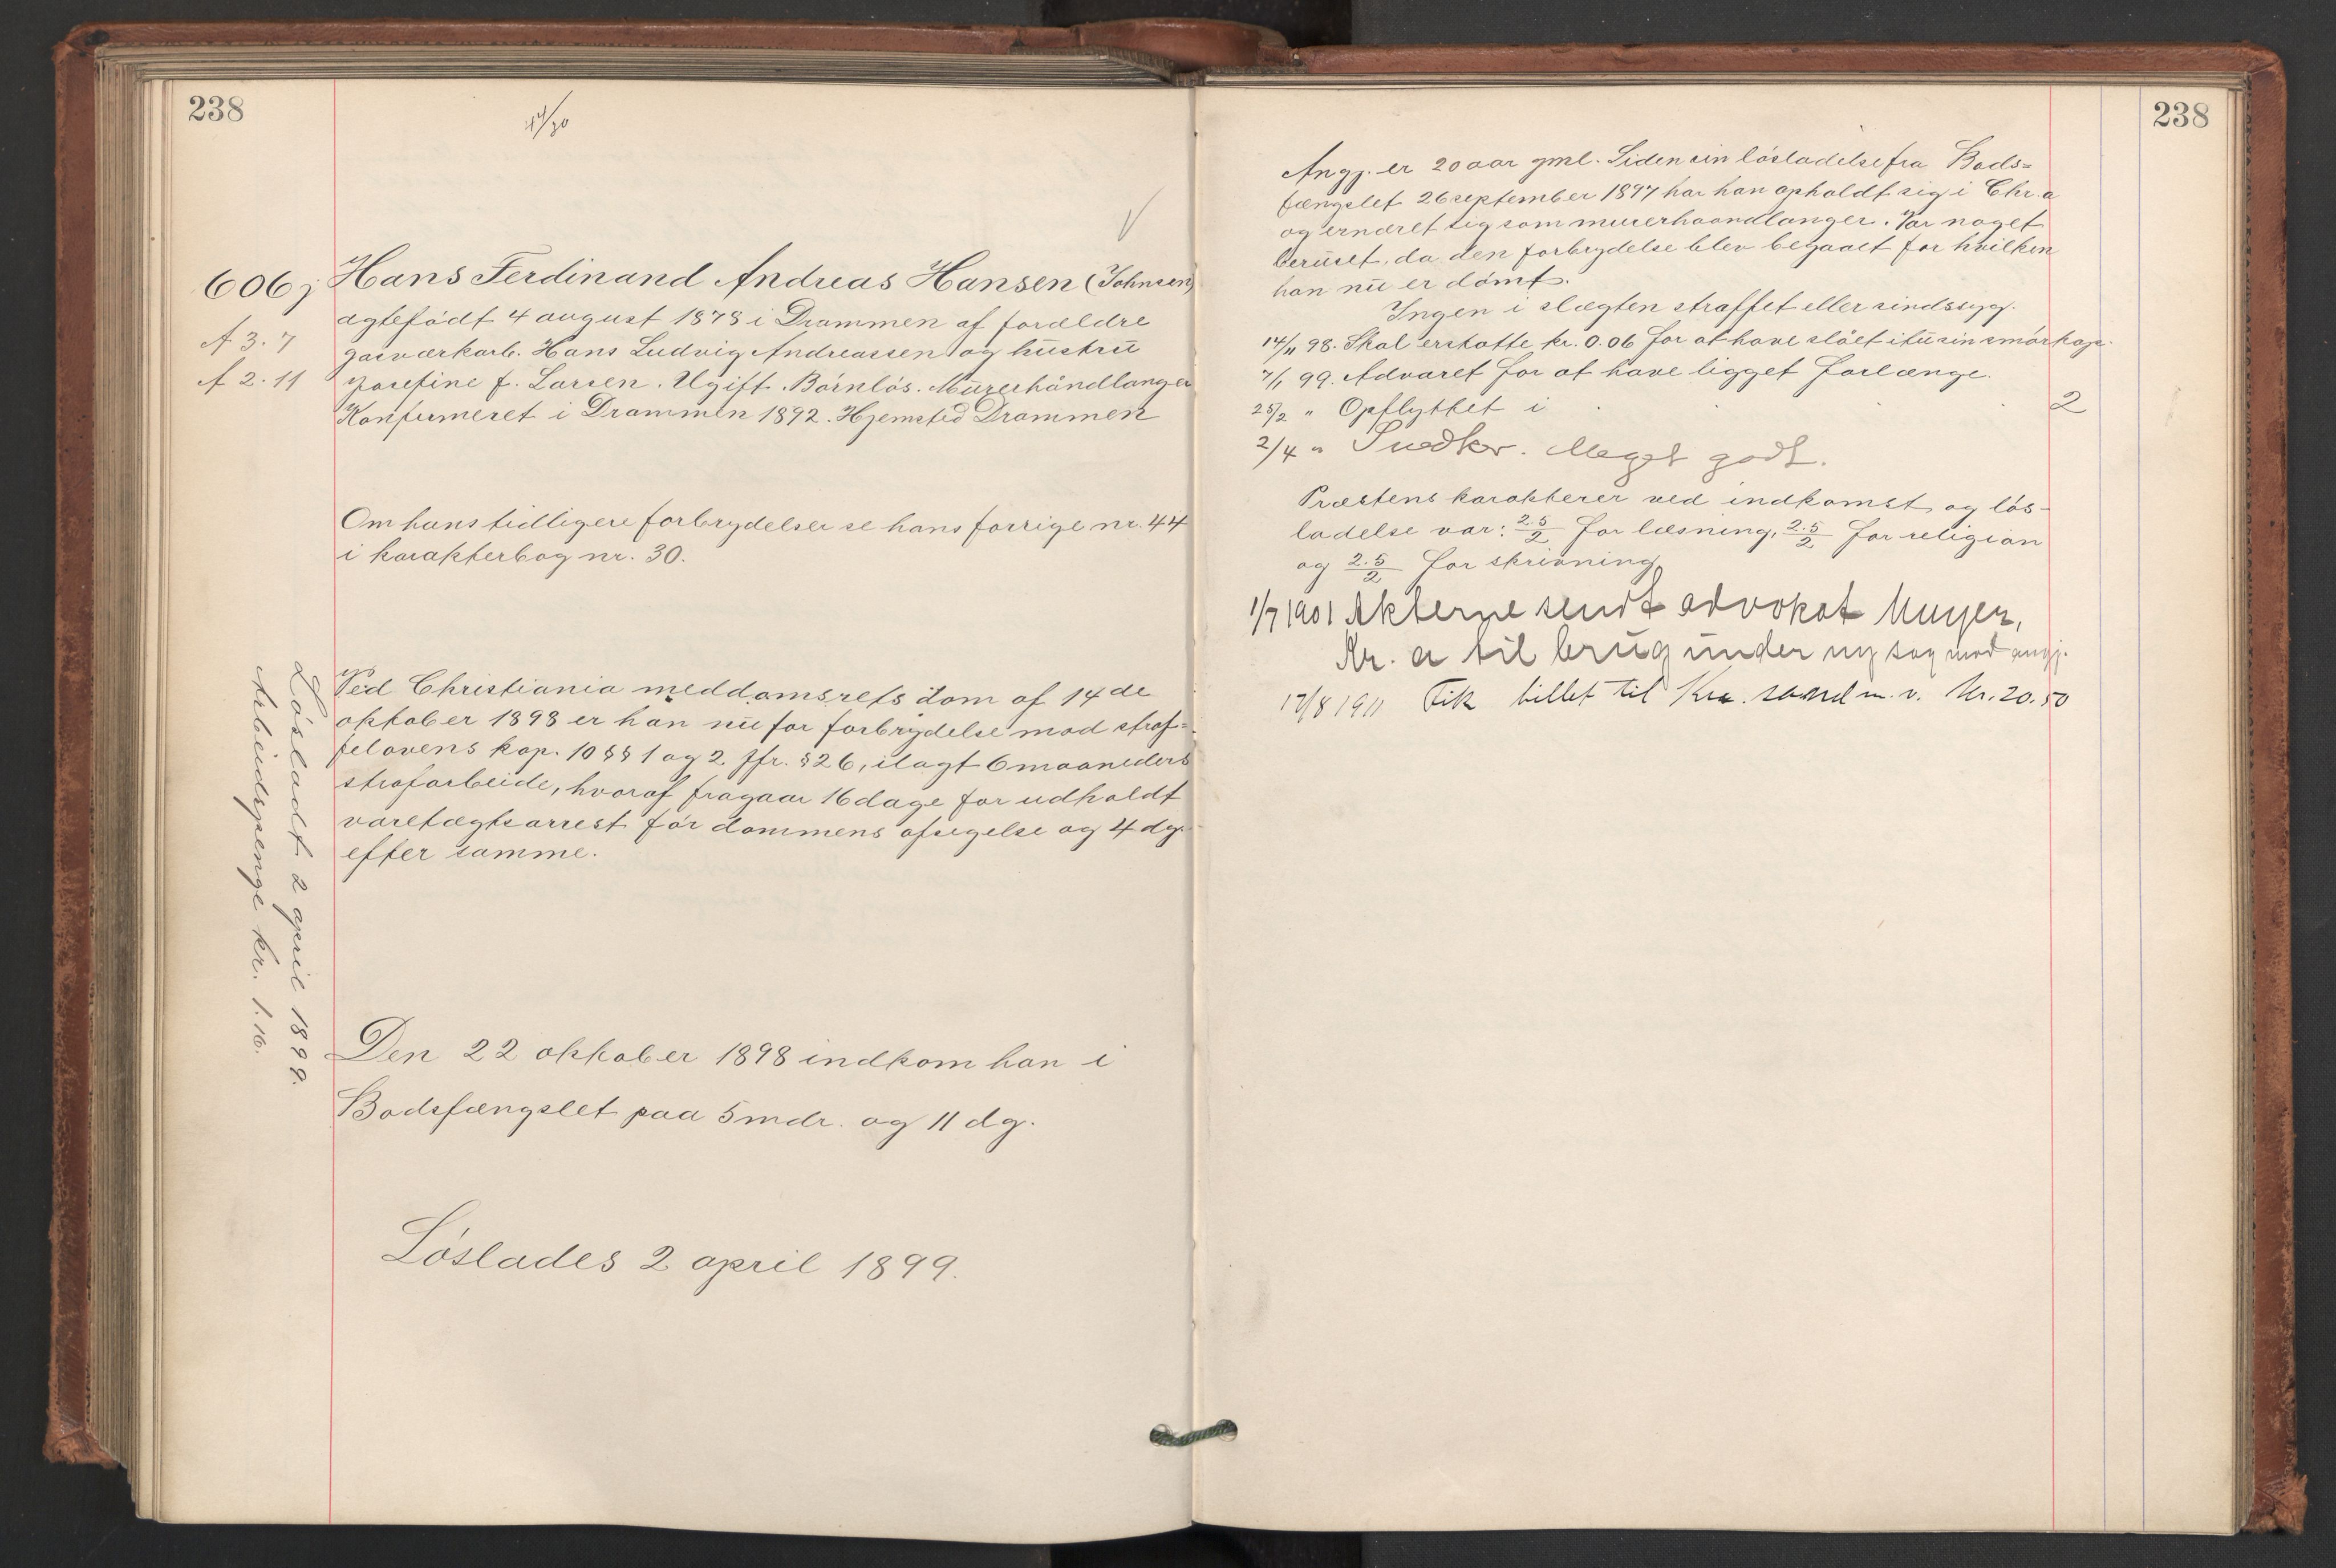 238
44/30
606j
Hans Ferdinand Andreas Hansen (Johnsen)
A 3.7
ægtefødt 4 august 1878 i Drammen af forældre
gasværkarb. Hans Ludvig Andreassen og hustru
A 2.11
Josefine f. Larsen. Ugift. Børnløs. Murerhåndlanger
Konfirmeret i Drammen 1892. Hjemsted Drammen
Om hans tidligere forbrydelser se hans forrige nr. 44
i karakterbog nr. 30.
Ved Christiania meddomsrets dom af 14de
oktober 1898 er han nu for forbrydelse mod straf=
felovens kap. 10 §§ 1 og 2 jfr. § 26, ilagt 6 maaneders
strafarbeide, hvoraf fragaar 16 dage for udholdt
varetægtsarrest før dommens afsigelse og 4 dg.
efter samme.
Løsladt 2 april 1899.
Arbeidspenge kr. 1.16.
Den 22 oktober 1898 indkom han i
Bodsfængslet paa 5 mdr. og 11 dg.
Løslades 2 april 1899.
238
Angj. er 20 aar gml. Siden sin løsladelse fra Bods=
fængslet 26 september 1897 har han opholdt sig i Chr.a
og ernæret sig som murerhaandlanger. Var noget
beruset, da den forbrydelse blev begaaet for hvilken
han nu er dømt.
Ingen i slægten straffet eller sindssyg.
14/11 98. Skal erstatte kr. 0.06 for at have slået itu sin smørkop.
7/1 99. Advaret for at have ligget forlænge.
25/2 " Opflyttet i . . . 2
2/4 " Snedker. Meget godt.
Præstens karakterer ved indkomst og løs-
ladelse var: 2.5/2 for læsning, 2.5/2 for religion
og 2.5/2 for skrivning.
1/7 1901 Akterne sendt advokat
Kr. a til brug under ny sag mod angj.
17/8 1911 Fik billet til Kr. sand m. v. Kr. 20.50